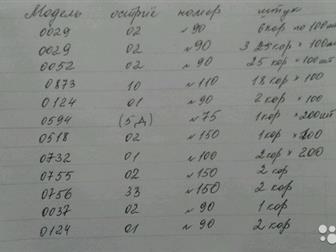 Модель острие номер штук
0029 02 №90 6кор по 100шт
0029 02 №90 3 25кор × 100шт
0052 02 №90 25 кор × 100шт
0873 10 №110 18 кор × 100
0124 01 №90 2кор × 100
0594 (5Д) №75 1кор × 200шт
0518 02 №150 1кор × 200
0732 01 №100 2кор × 200
0755 02 №150 2 кор
0756 33 №150 2 кор
0037 02 №90 1 кор
0124 01 №90 2 кор